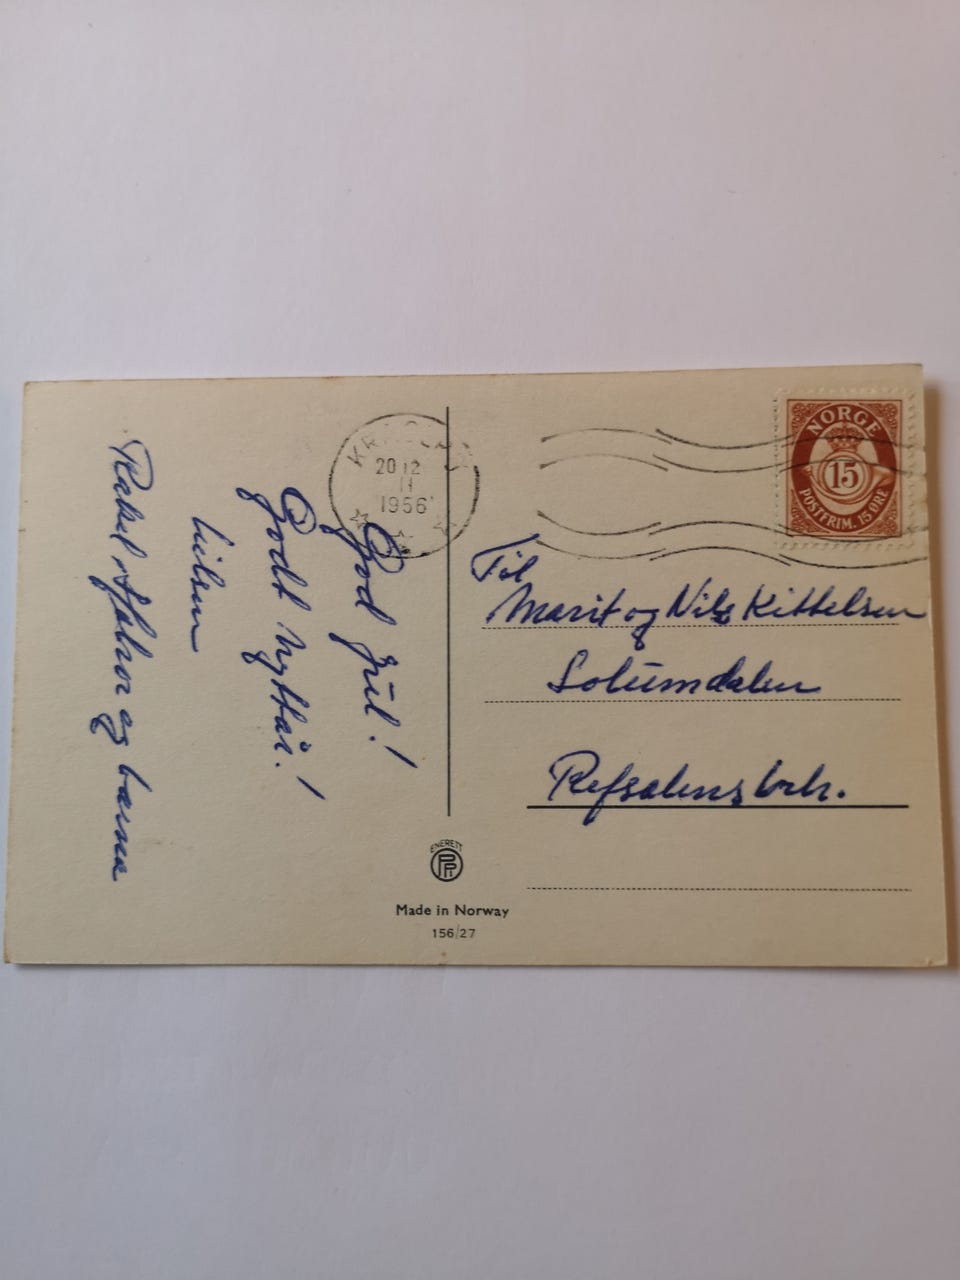 God jul!
Godt Nyttår!
hilsen
Rakel og barna
20 12
11
1956
NORGE
15
POSTFRIM. 15 ØRE
Til
Marit og Nils Kittelsen
Solumdalen
Refsalens brh.
ENERETT
Made in Norway
156/27